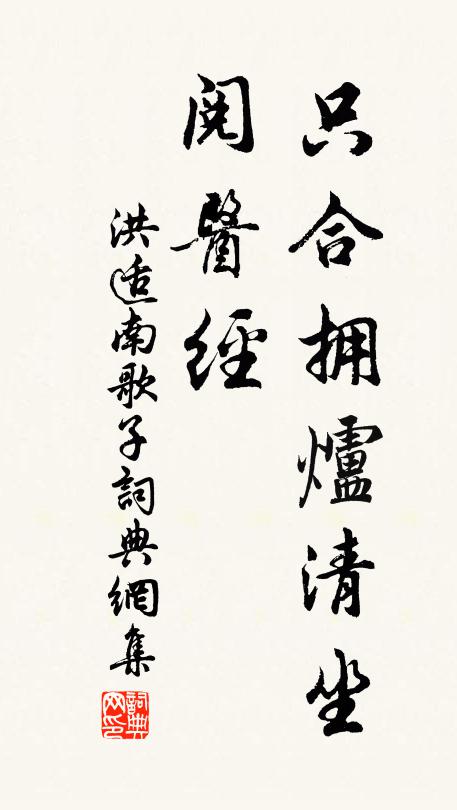 只合拥爐清坐
閱醫經
洪适南歌子詞典網集
詞典网印